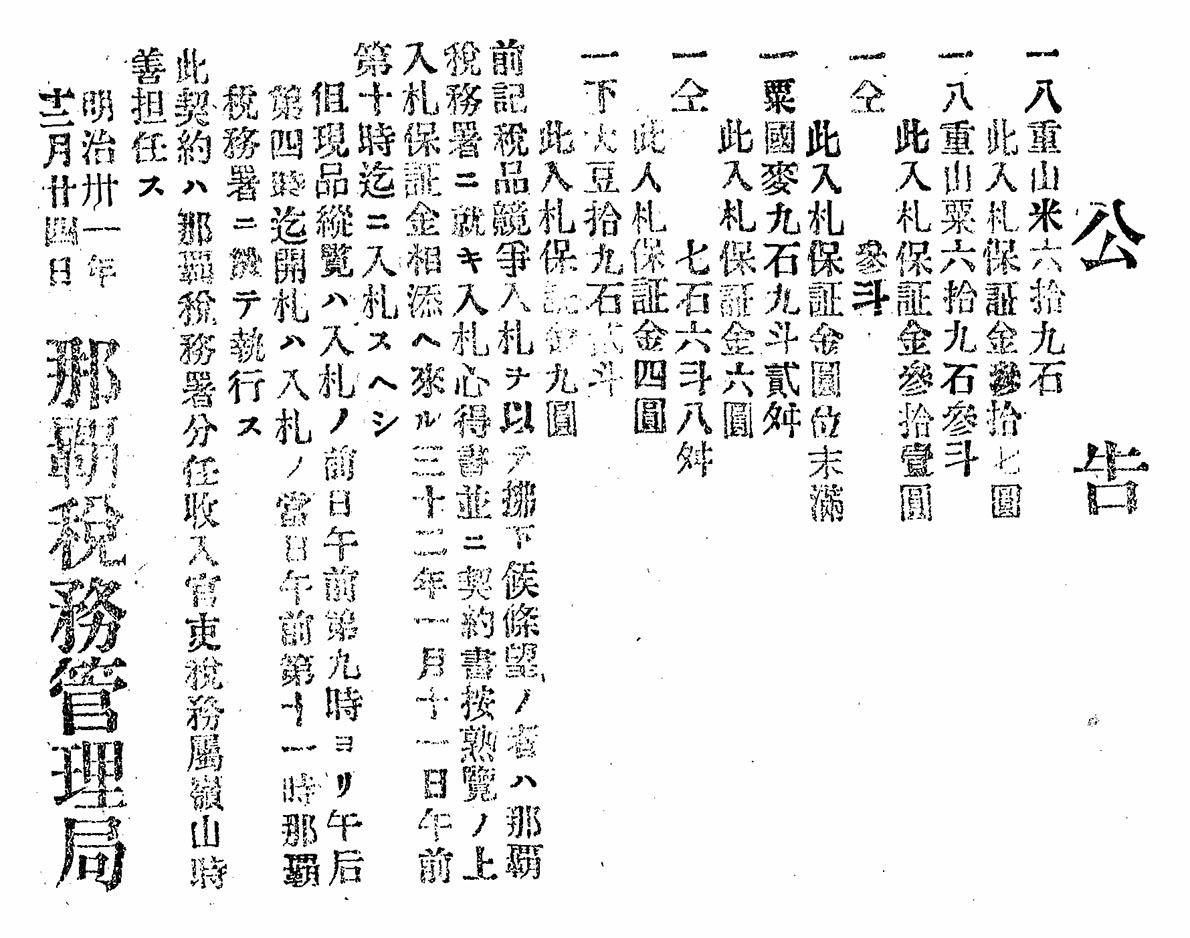 公告
一八重山米六拾九石
此入札保証金參拾七圓
一八重山粟六拾九石參斗
此入札保証金參拾壹圓
一仝　參斗
此入札保証金圓位末滿
一粟國麥九石九斗貳舛
此入札保証金六圓
一仝　七石六斗八舛
此人札保証金四圓
一下大豆拾九石貳斗
此入札保証金九圓
前記税品競爭入札ヲ以テ拂下候條望ノ者ハ那覇
税務署ニ就キ入札心得書並ニ契約書按熟覽ノ上
入札保証金相添ヘ來ル三十二年一月十一日午前
第十時迄ニ入札スヘシ
但現品縱覽ハ入札ノ前日午前第九時ヨリ午后
第四時迄開札ハ入札ノ當日午前第十一時那覇
税務署ニ於テ執行ス
此契約ハ那覇税務署分任收入官吏税務屬嶺山時
善担任ス
明治卅一年
十二月廿四日
那覇税務管理局